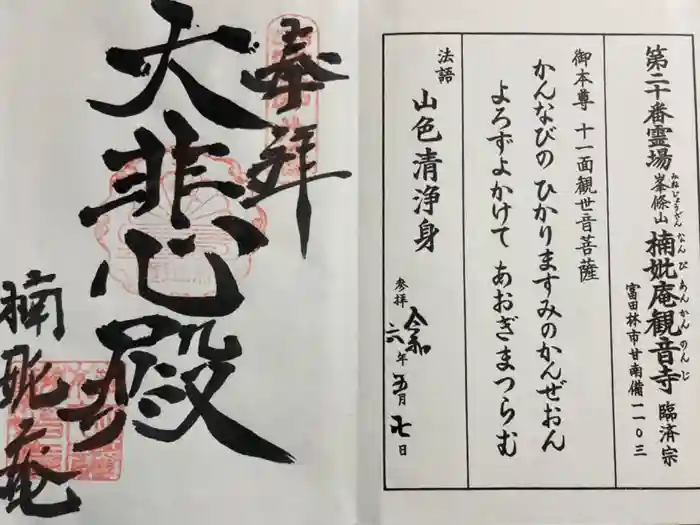 第二十番霊場 峯條山 楠妣庵観音寺 臨済宗
みねじょうざん なんぴあんかんのんじ
富田林市甘南備一一〇三
御本尊 十一面観世音菩薩
かんなびの ひかりますみのかんぜおん
よろずよかけて あおぎまつらむ
法語 山色清浄身
参拝 令和六年五月七日
奉拝
大悲殿
楠妣庵